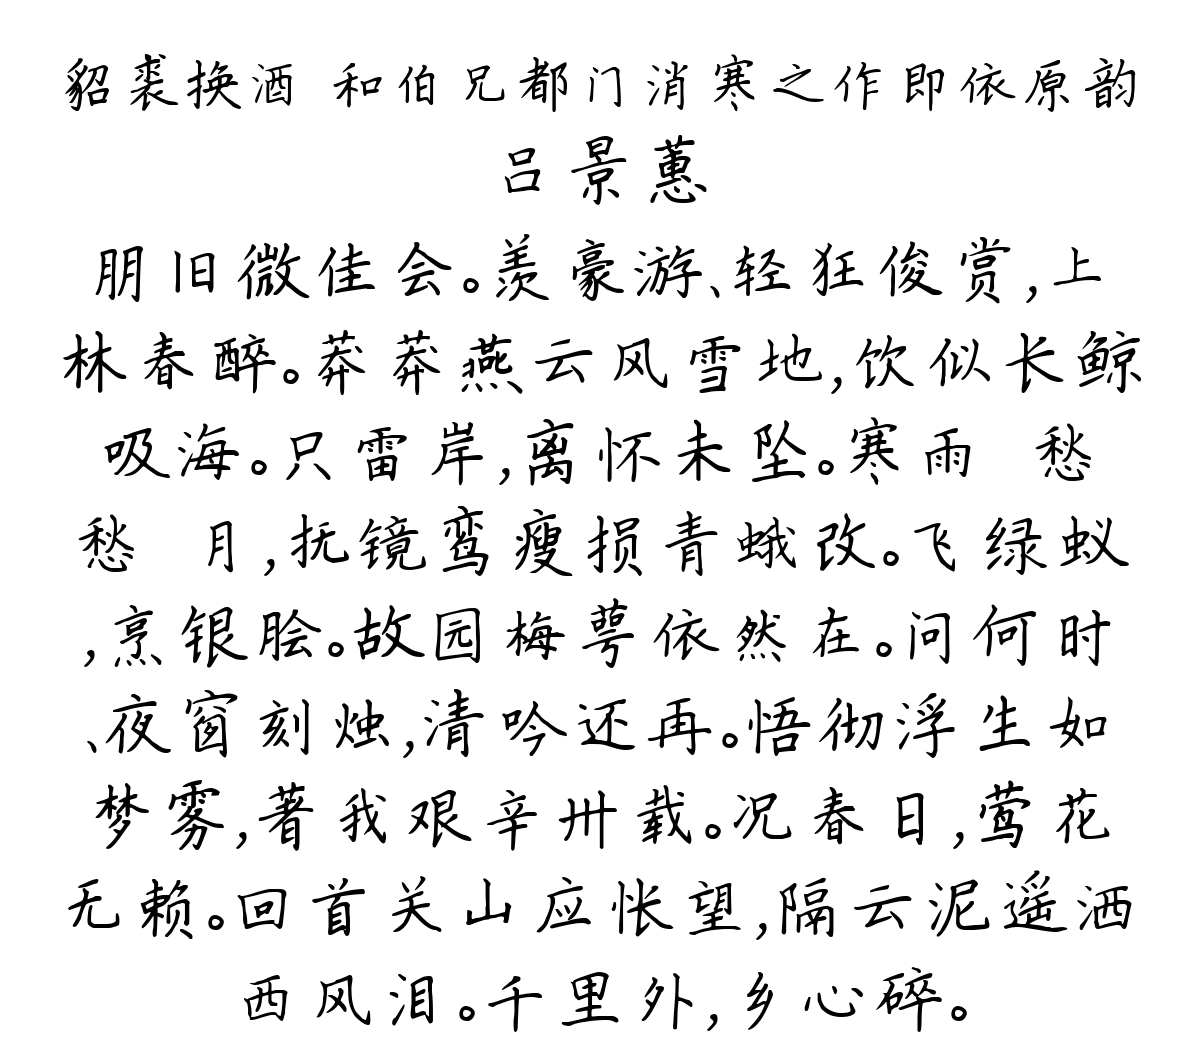 貂裘换酒 和伯兄都门消寒之作即依原韵
吕景蕙
朋旧微佳会。羡豪游、轻狂俊赏,上
林春醉。莽莽燕云风雪地,饮似长鲸
吸海。只雷岸,离怀未坠。寒雨 愁
愁 月,抚镜鸾瘦损青蛾改。飞绿蚁
,烹银脍。故园梅萼依然在。问何时
、夜窗刻烛,清吟还再。悟彻浮生如
梦雾,著我艰辛卅载。况春日,莺花
无赖。回首关山应怅望,隔云泥遥洒
西风泪。千里外,乡心碎。